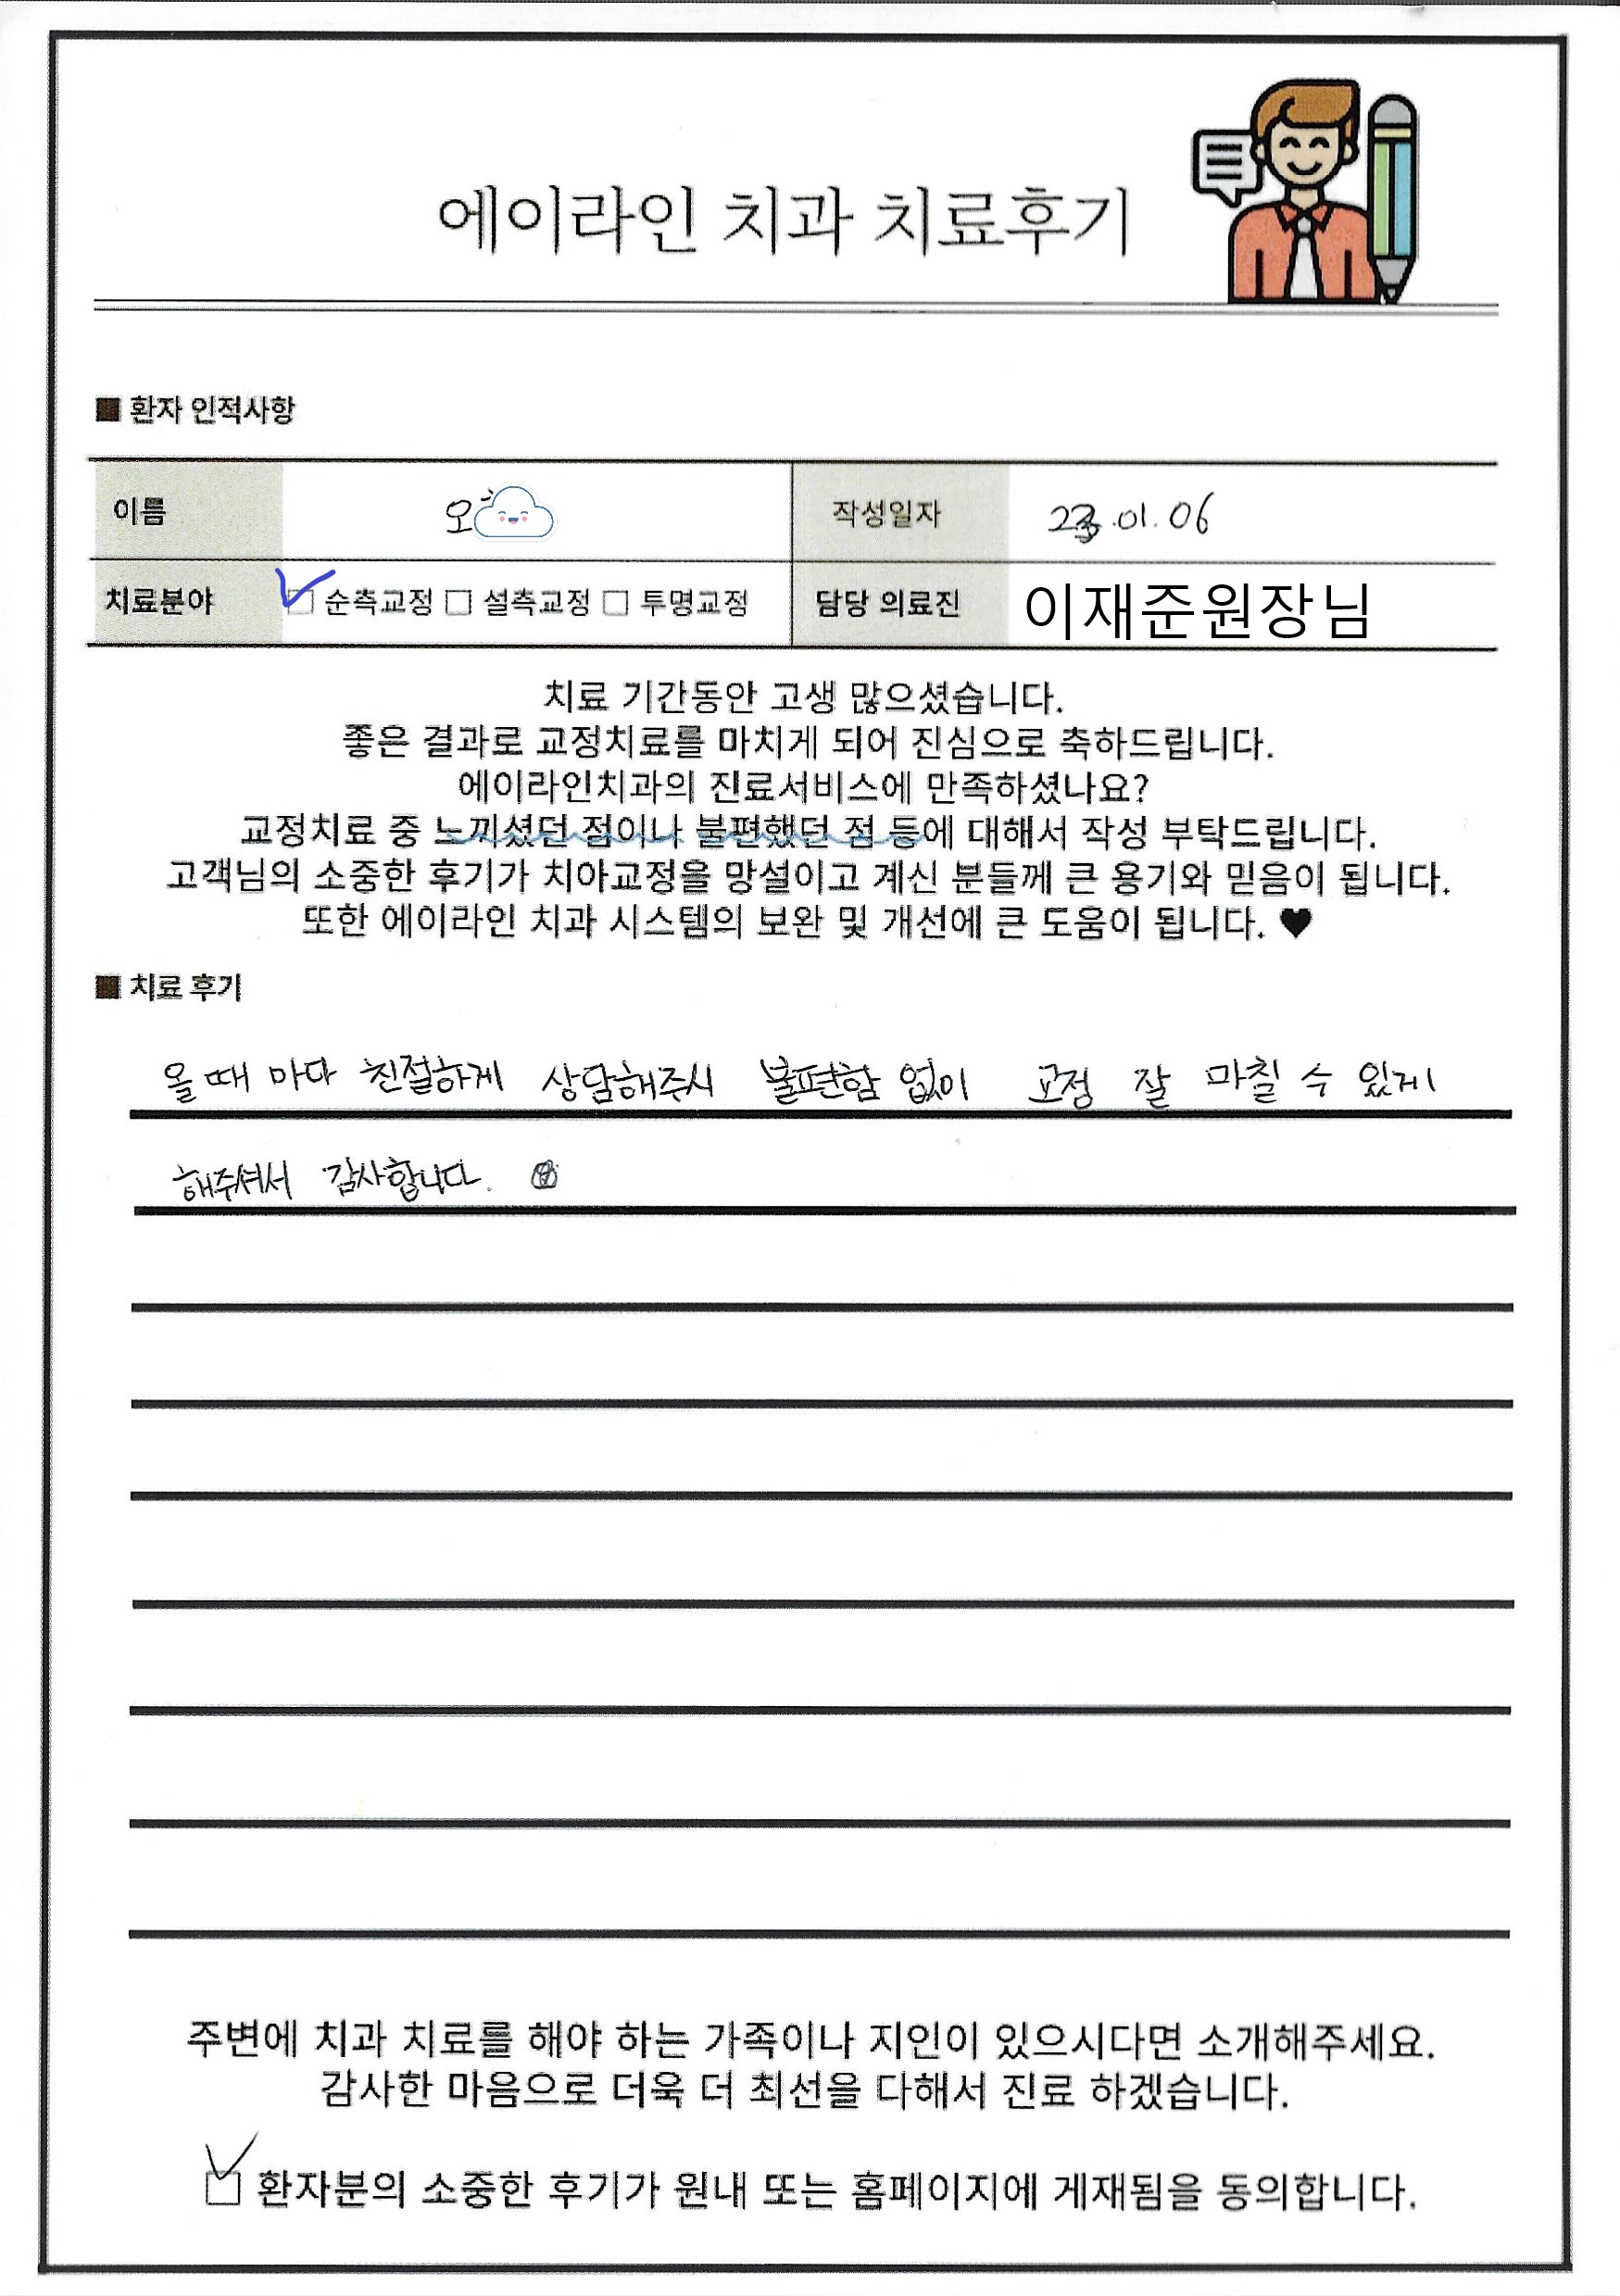 에이라인 치과 치료후기
■ 환자 인적사항
이름 오 작성일자 23.01.06
치료분야 ☑ 순측교정 □ 설측교정 □ 투명교정 담당 의료진 이재준원장님
치료 기간동안 고생 많으셨습니다.
좋은 결과로 교정치료를 마치게 되어 진심으로 축하드립니다.
에이라인치과의 진료서비스에 만족하셨나요?
교정치료 중 느끼셨던 점이나 불편했던 점 등에 대해서 작성 부탁드립니다.
고객님의 소중한 후기가 치아교정을 망설이고 계신 분들께 큰 용기와 믿음이 됩니다.
또한 에이라인 치과 시스템의 보완 및 개선에 큰 도움이 됩니다. ♥
■ 치료 후기
올 때 마다 친절하게 상담해주시 불편함 없이 교정 잘 마칠 수 있게
해주셔서 감사합니다.
주변에 치과 치료를 해야 하는 가족이나 지인이 있으시다면 소개해주세요.
감사한 마음으로 더욱 더 최선을 다해서 진료 하겠습니다.
☑ 환자분의 소중한 후기가 원내 또는 홈페이지에 게재됨을 동의합니다.